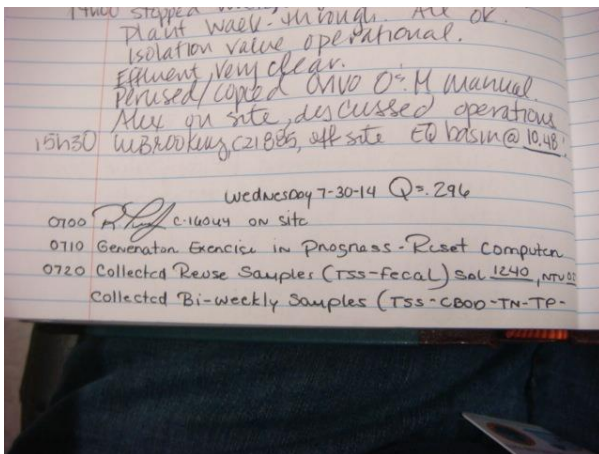 14h00 stopped
Plant walk-through. All ok.
Isolation valve operational.
Effluent very clear.
Perused/copied Onvo O&M Manual.
Alex on site, discussed operations
15h30 C21885, off site EQ basin @ 10.48'
Wednesday 7-30-14 Q=.296
0700 C-16044 on site
0710 Generator Exercise in Progress - Reset Computer
0720 Collected Reuse Samples (TSS-Fecal) Sol 1240, NTU
Collected Bi-weekly Samples (TSS-CBOD-TN-TP-